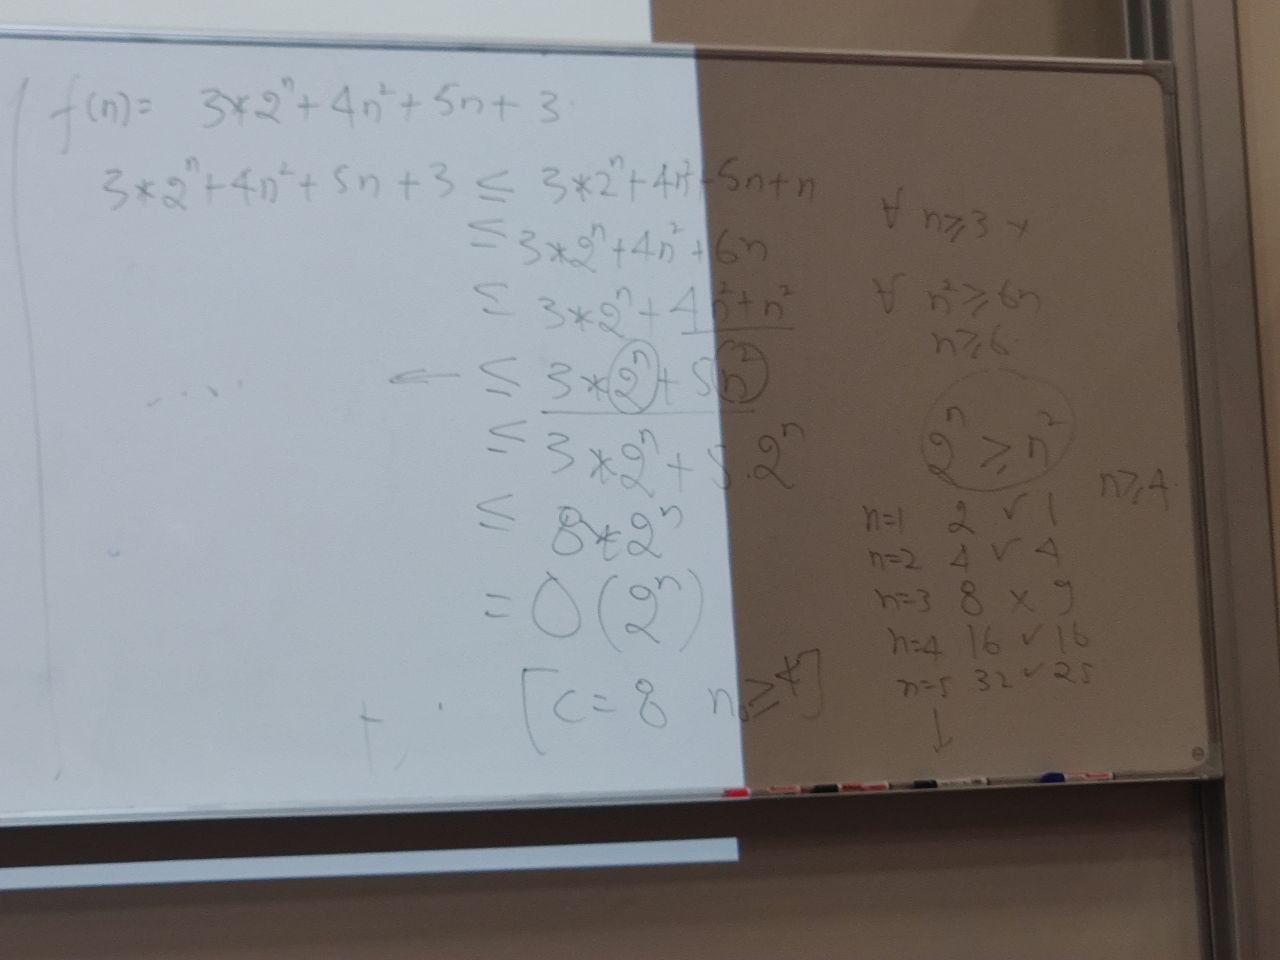 f(n) = 3*2ⁿ + 4n² + 5n + 3
3*2ⁿ + 4n² + 5n + 3 ≤ 3*2ⁿ + 4n² + 5n + n ∀ n ≥ 3
≤ 3*2ⁿ + 4n² + 6n
≤ 3*2ⁿ + 4n² + n² ∀ n² ≥ 6n
n ≥ 6
← ≤ 3*2ⁿ + 5n²
≤ 3*2ⁿ + 5.2ⁿ 2ⁿ ≥ n² n ≥ 4
≤ 8*2ⁿ
= O(2ⁿ)
[c = 8 n₀ ≥ 4]
n=1 2 ✓ 1
n=2 4 ✓ 4
n=3 8 × 9
n=4 16 ✓ 16
n=5 32 ✓ 25
↓